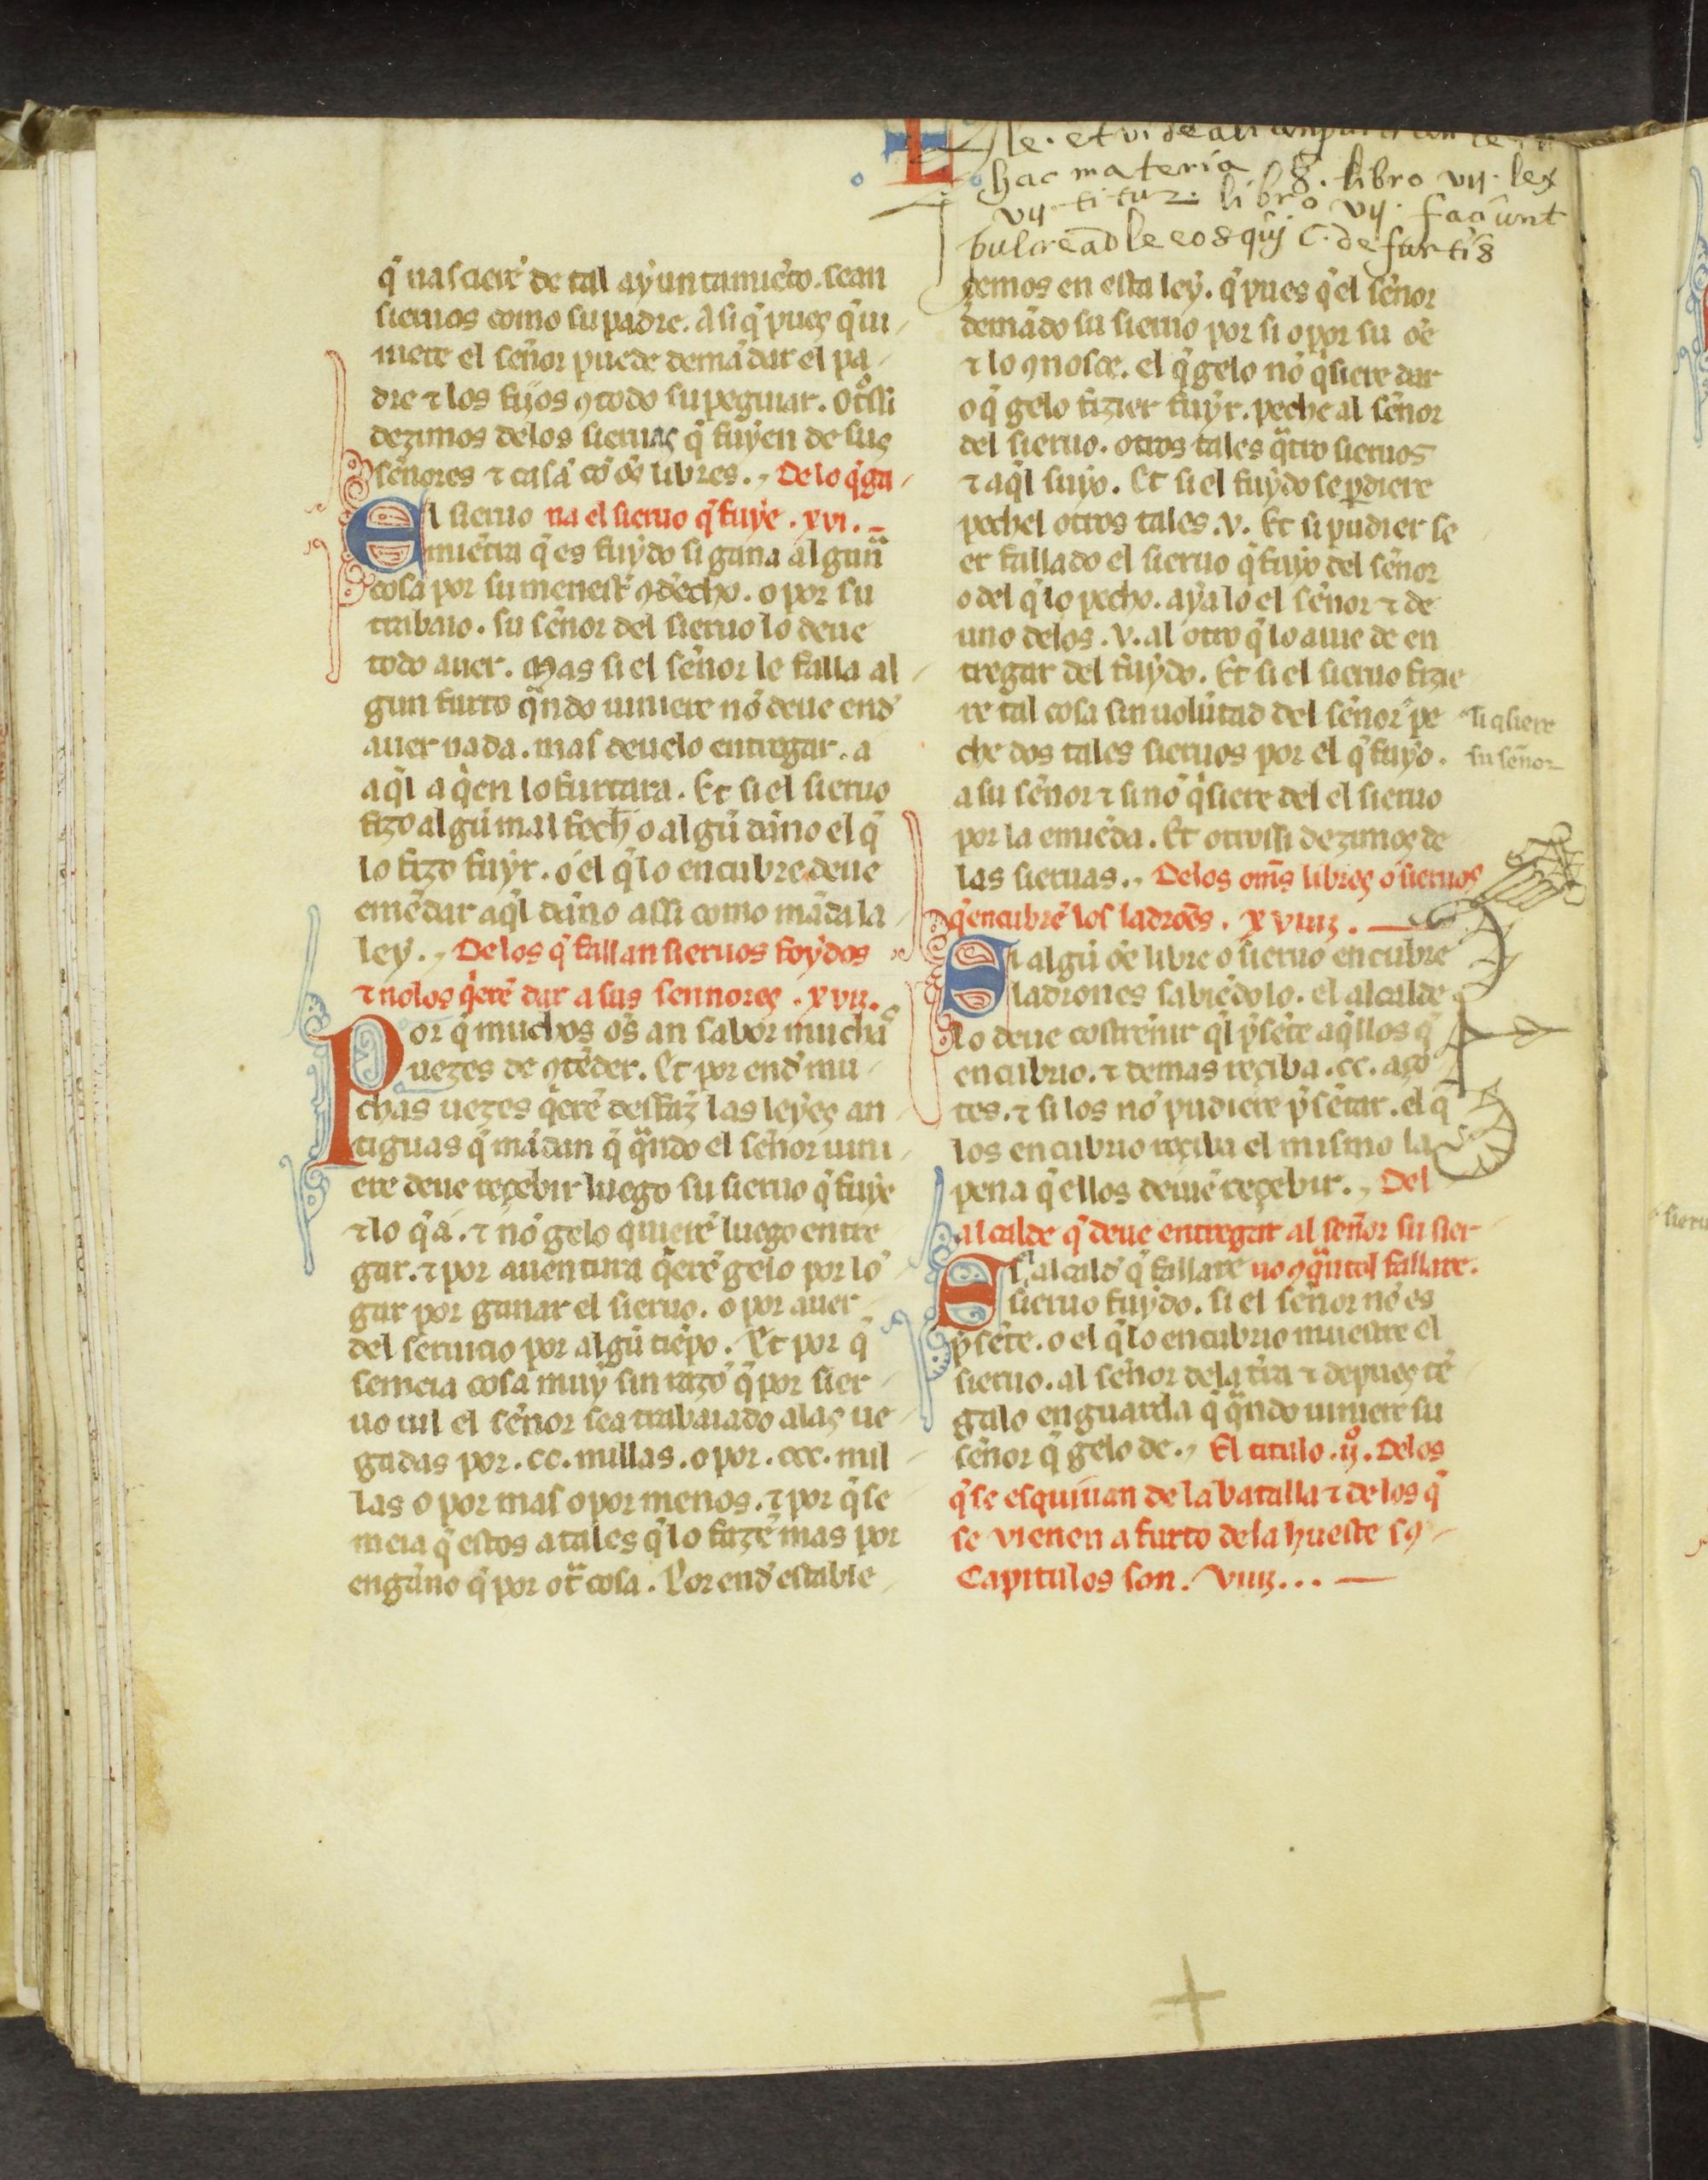 q̃ nasciere᷑ de tal ayuntamie᷑to. sean
sieruos como su padre. Asi q̃ pues q̃ ui
niere el sen̄or puede demādar el pa
dre ⁊ los fijos ꝯ todo su peguiar. Ot̊ssi
dezimos delos sieruas q̃ fuyen de sus
sen̄ores ⁊ casā cō oē libres. De lo q̃ ga
El sieruo na el sieruo q̃ fuye. xvi.
miētra q̃ es fuydo si gana algun̄
cosa por su menest̃ ꝯ dēcho. o por su
trabaio. su sen̄or del sieruo lo deue
todo auer. Mas si el sen̄or le falla al
gun furto q̃ndo uiniere nō deue end̃
auer nada. mas deuelo entregar. a
aq̃l a q̃en lo furtara. Et si el sieruo
fizo algū mal fech̃ o algū dān̄o el q̃
lo fizo fuyr. o el q̃ lo encubre deue
emēdar aq̃l dān̄o assi como māda la
ley. De los q̃ fallan sieruos foydos
⁊ nolos q̃erē dar a sus sennores. xvii.
Por q̃ muchos oēs an sabor mucha᷒
uezes de ꝯtēder. Et por end̃ mu
chas uezes q̃erē desfaz̃ las leyes an
tiguas q̃ mādan q̃ q̃ndo el sen̄or uini
ere deue reçebir luego su sieruo q̃ fuye
⁊ lo q̃ a. ⁊ nō gelo quierē luego entre
gar. ⁊ por auentura q̃erē gelo porlō
gar por ganar el sieruo. o por auer
del seruicio por algū tiēpo. Et por q̃
semeia cosa muy sin razō q̃ por sier
uo uil el sen̄or sea trabaiado alas ue
gadas por. cc. millas. o por. ccc. mil
las o por mas o por menos. ⁊ por q̃ se
meia q̃ estos atales q̃ lo fazē mas por
engān̄o q̃ por ot̃ cosa. Por end̃ estable
hac materia S. libro vij. lex
vij titu. libro vij. faciunt
eos quj C. de furtis
zemos en esta ley. q̃ pues q̃ el sen̄or
demādo su sieruo por si o por su oē
⁊ lo ꝯnosce. el q̃ gelo nō q̃siere dar
o q̃ gelo fizier fuyr. peche al sen̄or
del sieruo. otros tales q̃tro sieruos
⁊ aq̃l suyo. Et si el fuydo se ꝑdiere
pechel otros tales. v. Et si pudier se
er fallado el sieruo q̃ fuyo del sen̄or
o del q̃ lo pecho. ayalo el sen̄or ⁊ de
uno delos. v. al otro q̃ lo auie de en
tregar del fuydo. Et si el sieruo fizie
re tal cosa sin uolūtad del sen̄or pe
si qsiere
che dos tales sieruos por el q̃ fuyo.
su señor
a su sen̄or ⁊ si nō q̃siere del el sieruo
por la emiēda. Et otrossi dezimos de
las sieruas. Delos om̄s libres o sieruos
q̃ encubrē los ladrōes. xviii.
Si algū oē libre o sieruo encubre
ladrones sabiēdolo. el alcalde
lo deue costren̄ir q̃l p̃sēte aq̃llos q̃
encubrio. ⁊ demas reçiba. cc. aço
tes. ⁊ si los nō pudiere p̃sētar. el q̃
los encubrio reçiba el mismo la
pena q̃ ellos deuiē reçebir. Del
alcalde q̃ deue entregar al sen̄or su sier
El alcald̃ q̃ fallare uo ꝯ q̃ntol fallare.
sieruo fuydo. si el sen̄or nō es
p̃sēte. o el q̃ lo encubrio muestre el
sieruo. al sen̄or dela tr̃ra ⁊ depues tē
galo en guarda q̃ q̃ndo uiniere su
sen̄or q̃ gelo de. El titulo. ij̊. Delos
q̃ se esquiuan de la batalla ⁊ de los q̃
se vienen a furto de la hueste sꝯ
Capitulos son. viiij...